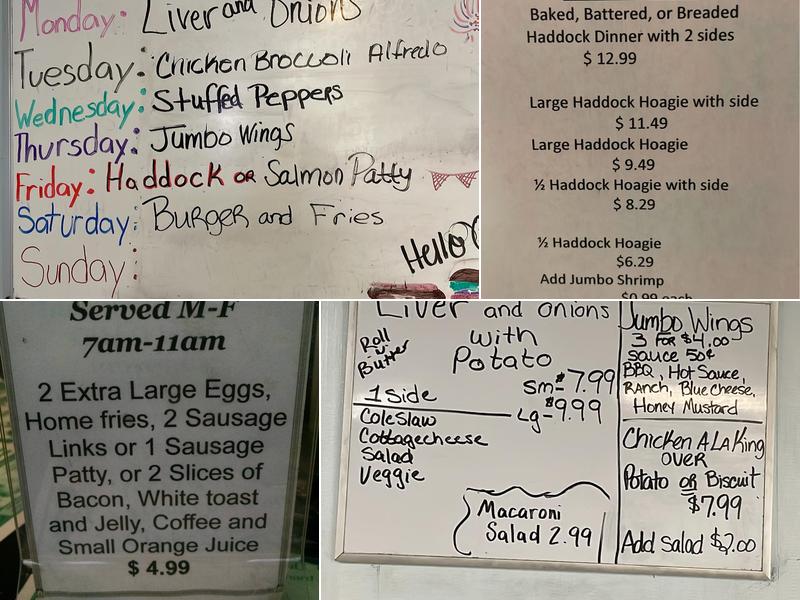 Monday: Liver and Onions
Tuesday: Chicken Broccoli Alfredo
Wednesday: Stuffed Peppers
Thursday: Jumbo Wings
Friday: Haddock or Salmon Patty
Saturday: Burger and Fries
Sunday:
Hello
Baked, Battered, or Breaded
Haddock Dinner with 2 sides
$ 12.99
Large Haddock Hoagie with side
$ 11.49
Large Haddock Hoagie
$ 9.49
½ Haddock Hoagie with side
$ 8.29
½ Haddock Hoagie
$6.29
Add Jumbo Shrimp
$0.99 each
Served M-F
7am-11am
2 Extra Large Eggs,
Home fries, 2 Sausage
Links or 1 Sausage
Patty, or 2 Slices of
Bacon, White toast
and Jelly, Coffee and
Small Orange Juice
$ 4.99
Liver and onions
with
Potato
Roll
n'
Butter
Sm-$7.99
1 Side
Lg-$9.99
Coleslaw
Cottagecheese
Salad
Veggie
Macaroni
Salad 2.99
Jumbo Wings
3 for $4.00
Sauce 50¢
BBQ, Hot Sauce,
Ranch, Blue Cheese,
Honey Mustard
Chicken A La King
over
Potato or Biscuit
$7.99
Add Salad $2.00